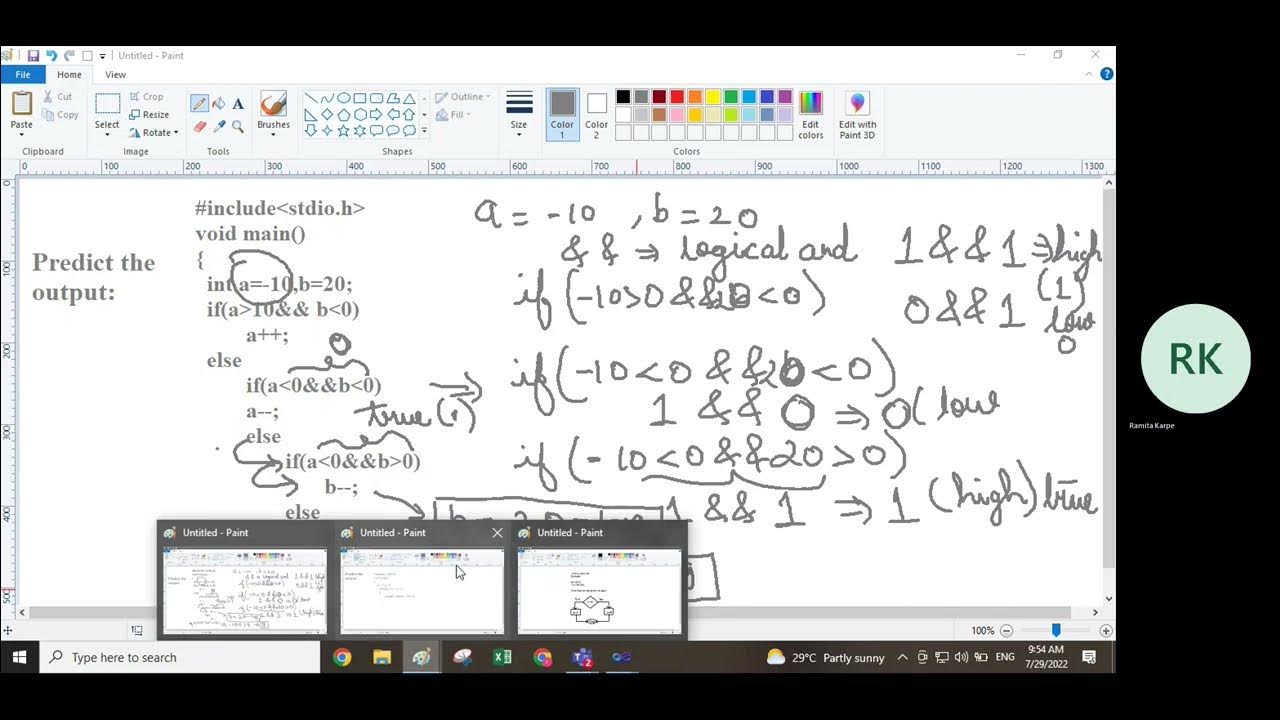 Untitled - Paint
File Home View
Paste
Cut
Copy
Clipboard
Select
Crop
Resize
Rotate
Image
A
Tools
Brushes
Shapes
Outline
Fill
Size
Color 1
Color 2
Colors
Edit colors
Edit with Paint 3D
0 100 200 300 400 500 600 700 800 900 1000 1100 1200 1300
0
100
200
300
400
500
Predict the
output:
#include<stdio.h>
void main()
{
int a=-10,b=20;
if(a>10&& b<0)
a++;
else
if(a<0&&b<0)
a--;
else
if(a<0&&b>0)
b--;
else
0
true(1)
a = -10 , b = 20
&& ⇒ logical and
1 && 1 ⇒ high
(1)
0 && 1 low
0
if (-10>0 && 20 <0)
if (-10<0 && 20 <0)
1 && 0 ⇒ 0( low
if (-10<0 && 20 >0)
1 && 1 ⇒ 1 (high) true
Untitled - Paint
Untitled - Paint
Untitled - Paint
100%
Type here to search
29°C Partly sunny
ENG
9:54 AM
7/29/2022
RK
Ramita Karpe